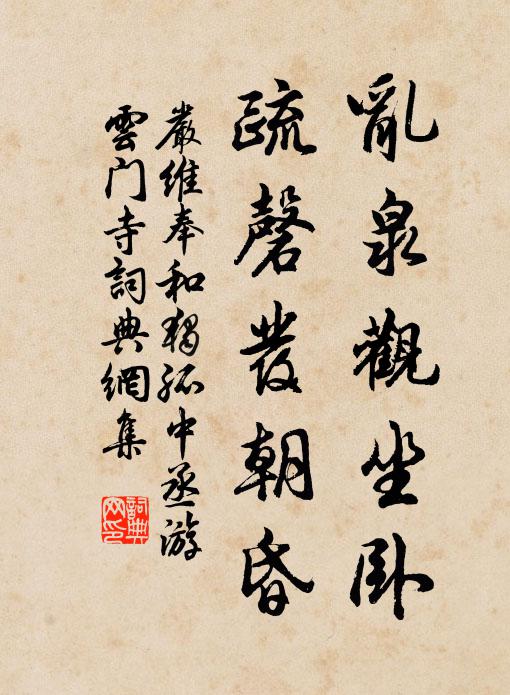 亂泉觀坐卧
疏磬發朝昏
嚴維奉和獨孤中丞游
雲门寺詞典網集
詞典网印